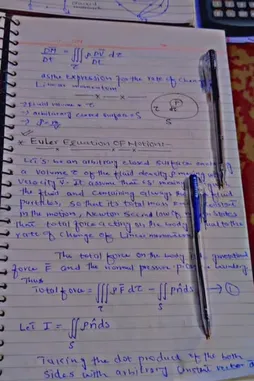 DM/Dt = ∭ ρ DV/Dt dτ
τ
as the expression for the rate of change
Linear momentum
→ fluid volume = τ
→ arbitrary closed surface = S
* Euler Equation Of Motion:-
Let S be an arbitrary closed surface
a volume τ of the fluid density ρ moving
velocity V. It assume that is moving
the fluid and containing always fluid
particles, so that its total mass
in the motion, Newton Second law of states
that total force acting on the body that to the
rate of change of Linear momentum
The total force on the body gravitational
force F and the normal pressure boundary.
Thus
Total force = ∭ ρ F dτ − ∬ p n̂ ds → ①
τ S
Let I = ∬ p n̂ ds
S
Taking the dot product of the both
sides with arbitrary constant vector